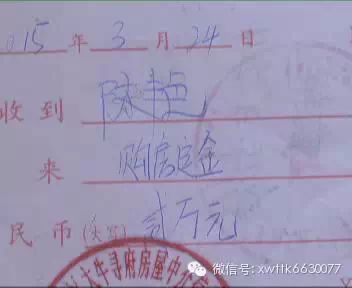 015年3月24日
收到 陈丰色
来 购房定金
民币(大写) 贰万元
大牛寻麻房屋中介
微信号: xwttk6630077